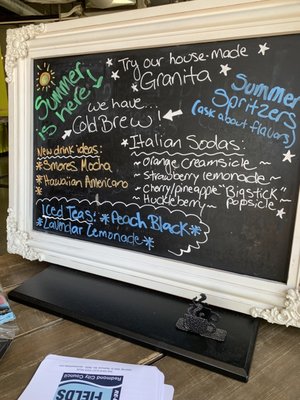 Try our house-made
Granita
Summer
is here!
we have...
Cold Brew!
Summer
Spritzers
(ask about flavors)
New drink ideas:
* Smores Mocha
* Hawaiian Americano
*
Italian Sodas:
~ Orange creamsicle ~
~ Strawberry lemonade ~
~ cherry/pineapple "Bigstick" ~
~ Huckleberry ~ popsicle
Iced Teas: * Peach Black *
* Lavendar Lemonade *
Redmond City Council
FIELDS